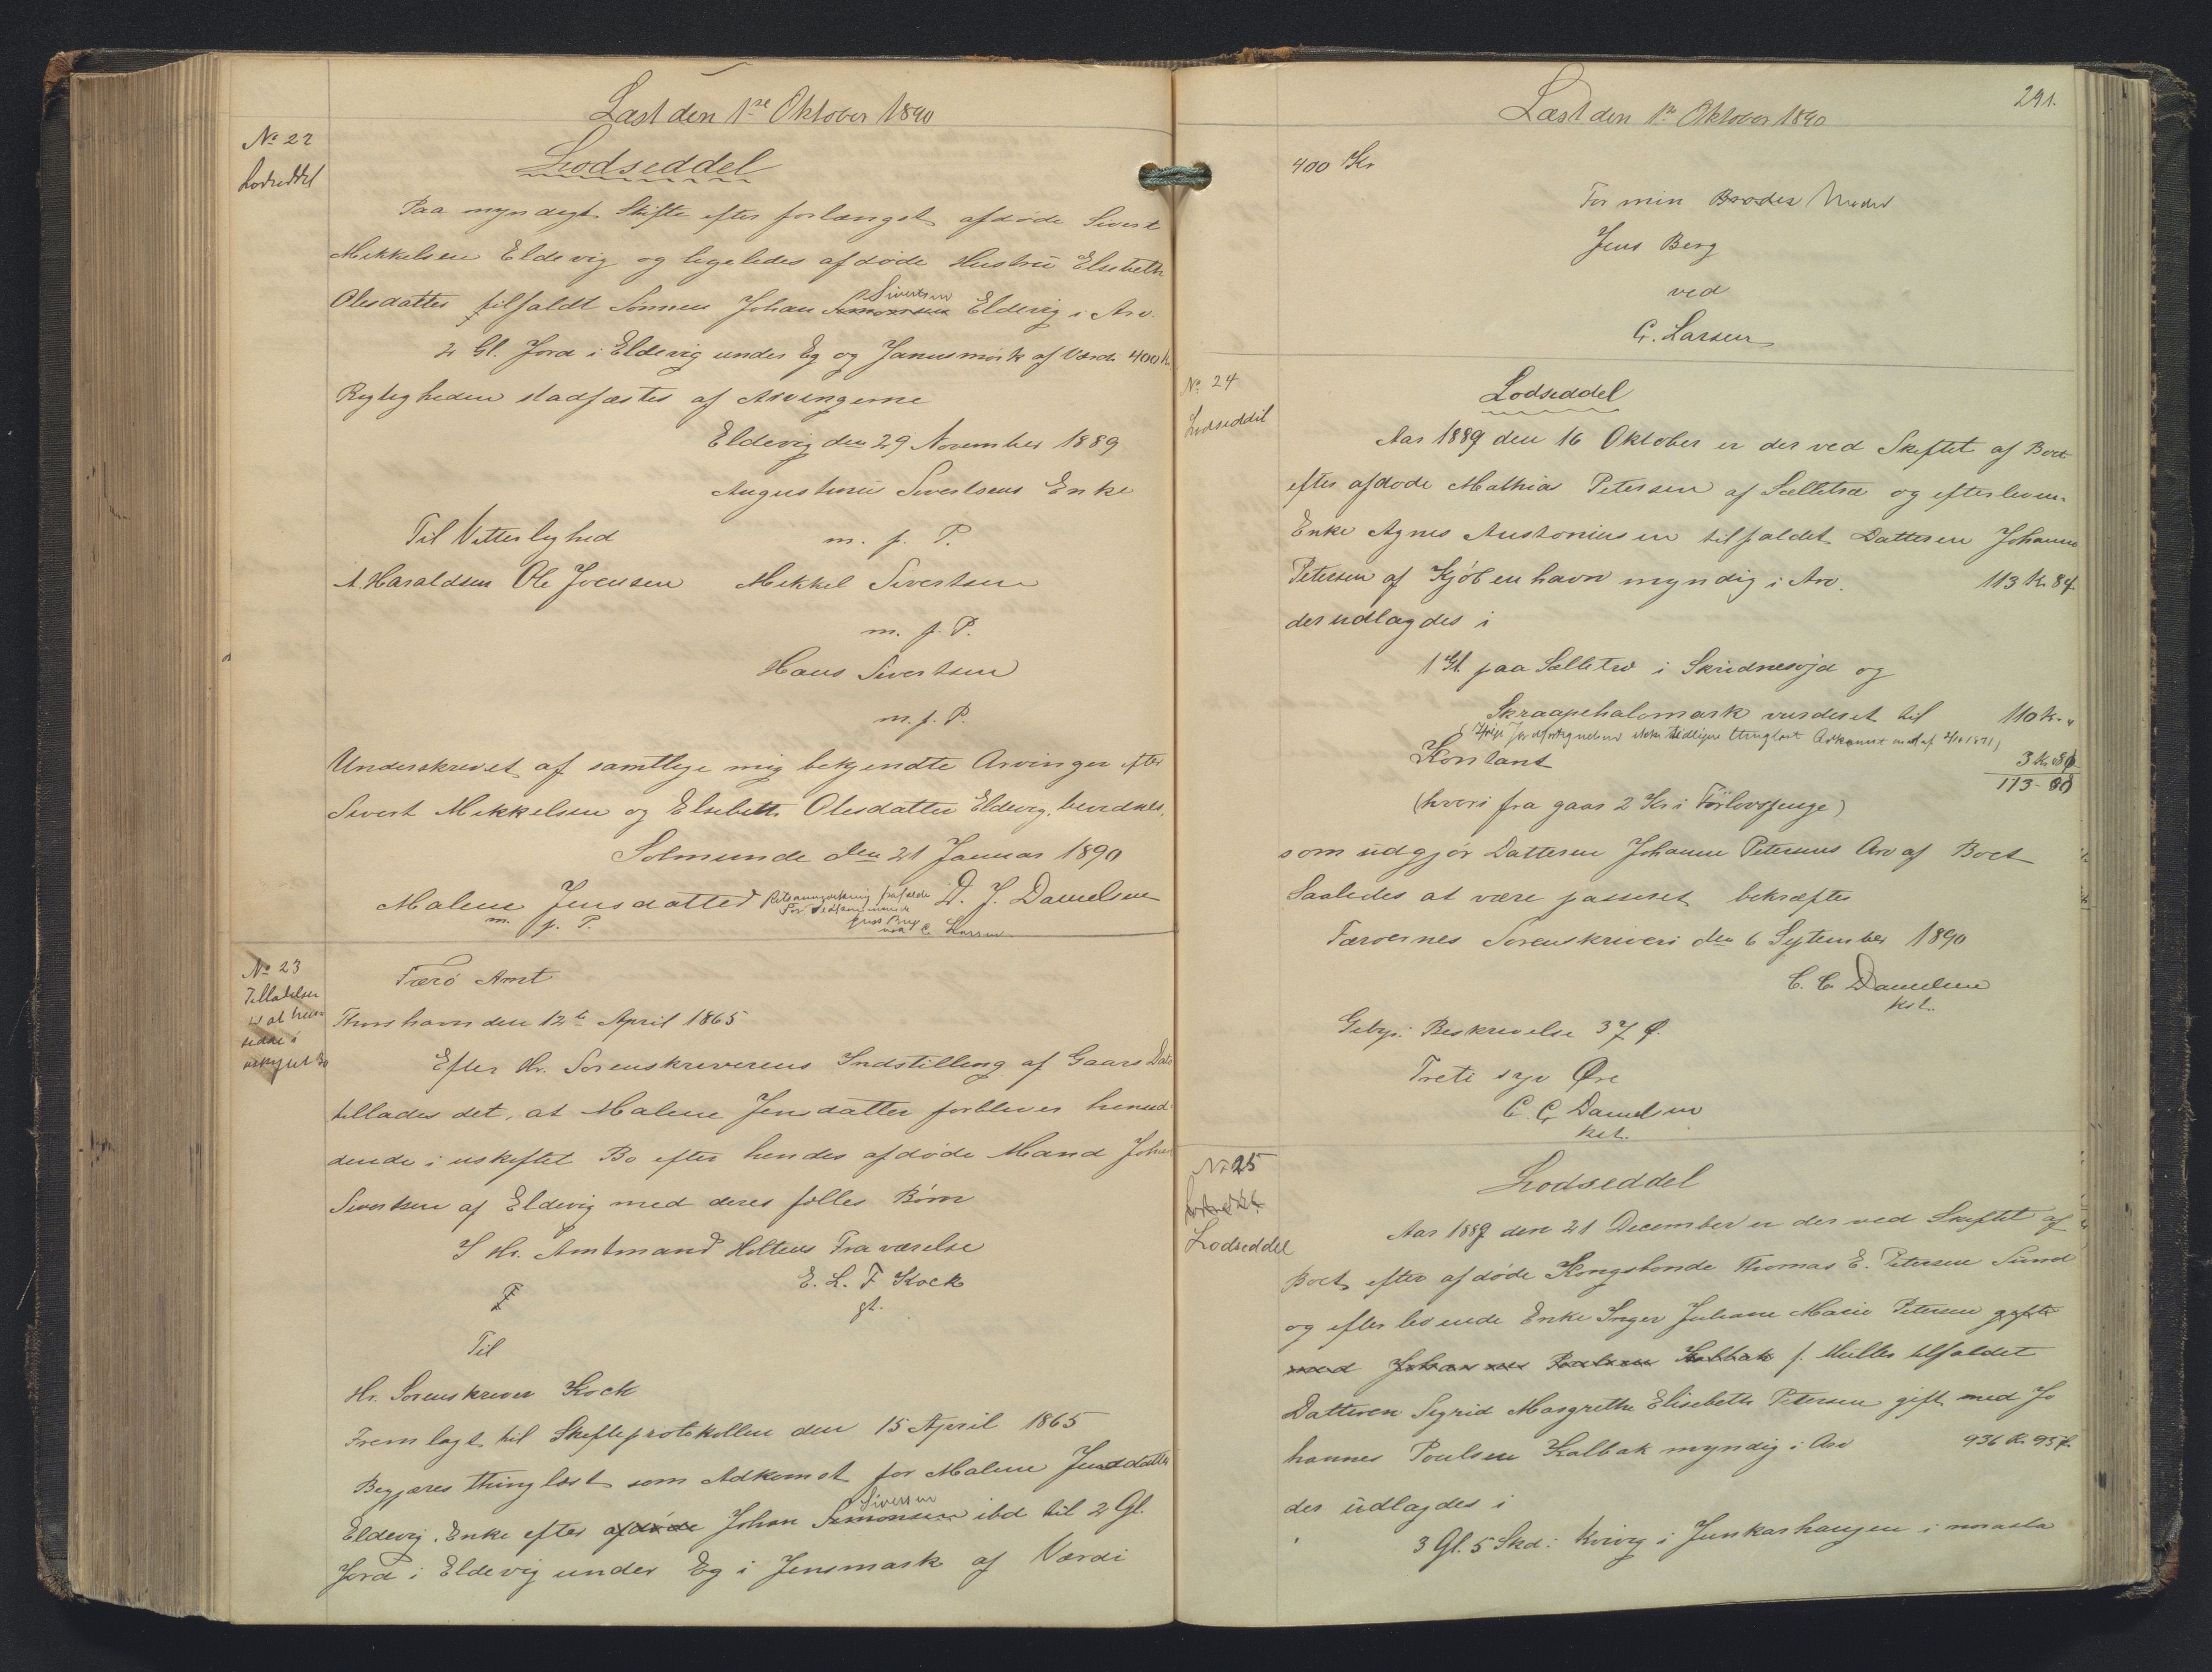 Læst den 1ste Oktober 1890
No 22
Lodseddel
Lodseddel
Paa myndigt Skifte efter forlængst afdøde Sivert
Mikkelsen Eldevig og ligeledes afdøde Hustru Elsebeth
Olesdatter tilfaldt Sønnen Johan Simonsen Sivertsen Eldevig i Arv.
2 Gl. Jord i Eldevig under Eg og Janusmørk af Værdi 400 Kr
Rigtigheden stadfæstes af Arvingerne
Eldevig den 29 November 1889
Augustinus Sivertsens Enke
Til Vitterlighed m. f. P.
A. Haraldsen Ole Joensen Mikkel Sivertsen
m. f. P.
Hans Sivertsen
m. f. P.
Underskrevet af samtlige mig bekjendte Arvinger efter
Sivert Mikkelsen og Elsebeth Olesdatter Eldevig, bevidnes,
Solmunde den 21 Januar 1890
Malene Jensdatter D. J. Danielsen
m. f. P. Jens Berg
ved C. Larsen
No 23
Tilladelse
til at hen-
sidde i
uskiftet Bo
Færø Amt
Thorshavn den 12te April 1865
Efter Hr. Sorenskriverens Indstilling af Gaars Dato
tillades det, at Malene Jensdatter forbliver hensid-
dende i uskiftet Bo efter hendes afdøde Mand Johan
Sivertsen af Eldevig med deres fælles Børn
I Hr. Amtmand Holtens Fraværelse
E. L. F. Kock
gt.
Til
Hr. Sorenskriver Kock
Fremlagt til Skifteprotokollen den 15 April 1865
Begjæres thinglæst som Adkomst for Malene Jensdatter
Eldevig, Enke efter afdøde Johan Simonsen Sivertsen ibd til 2 Gl.
Jord i Eldevig under Eg i Jensmark af Værdi
291.
Læst den 1ste Oktober 1890
400 Kr
For min Broder Moder
Jens Berg
ved
C. Larsen
No 24
Lodseddel
Lodseddel
Aar 1889 den 16 Oktober er der ved Skiftet af Boet
efter afdøde Mathias Petersen af Sælletræ og efterleven-
Enke Agnes Austoniusen tilfaldet Datteren Johanne
Petersen af Kjøbenhavn myndig i Arv. 113 Kr. 84
der udlagdes i
1 Gl. paa Sælletræ i Skridnesojd og
Skraapehalsmark vurderet til 110 Kr. "
Kontant 3 Kr 80
113 - 80
(hvori fra gaar 2 Kr i Forlovspenge)
som udgjør Datteren Johanne Petersens Arv af Boet
Saaledes at være passeret bekræftes
Færøernes Sorenskriveri den 6 September 1890
C. C. Danielsen
kst.
Gebyr: Beskrivelse 37 Ø.
Treti syv Øre
C. C. Danielsen
kst.
No 25
Lodseddel
Lodseddel
Aar 1889 den 21 December er der ved Skiftet af
Boet efter afdøde Kongsbonde Thomas E. Petersen Sund
og efterlevende Enke Inger Juliane Marie Petersen gift
med Johannes Poulsen Kalbak f. Müller tilfaldet
Datteren Sigrid Margrethe Elisebeth Petersen gift med Jo
hannes Poulsen Kalbak myndig i Arv 936 Kr. 95 Ø.
der udlagdes i
3 Gl. 5 Skd: Kvivig i Junkarhaugen i